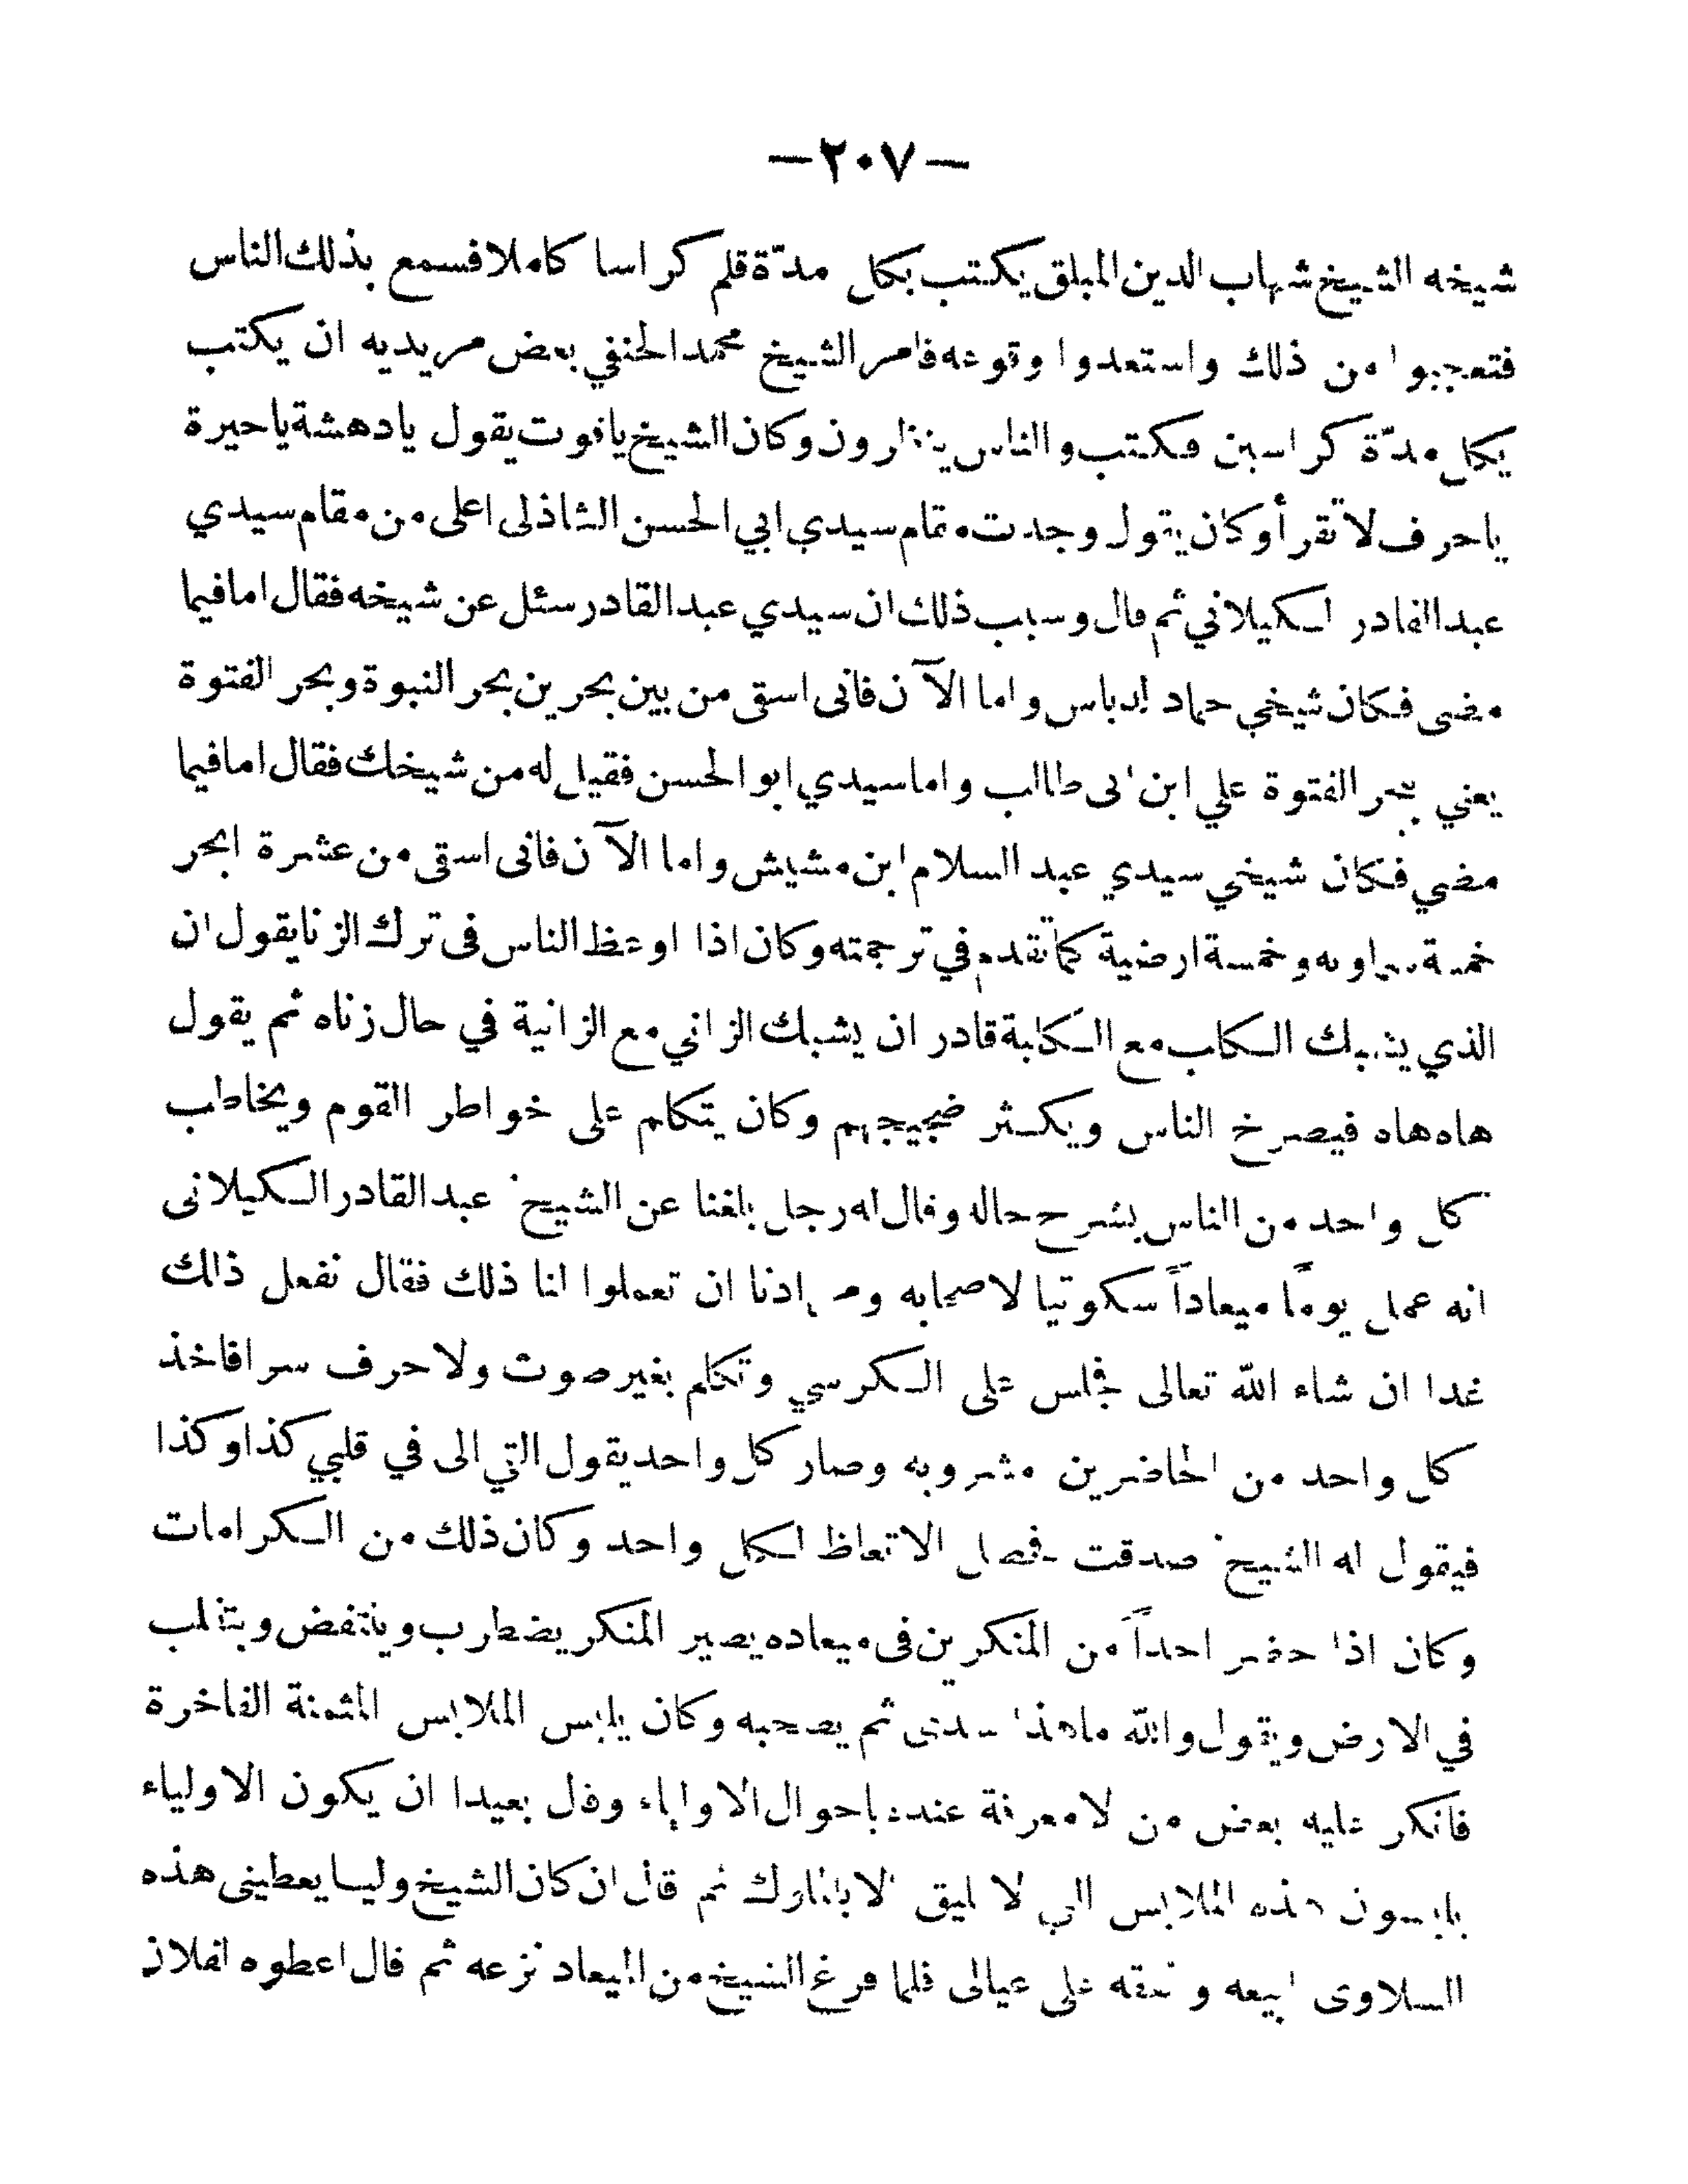 —٢٠٧—
شيخه الشيخ شهاب الدين الميلق يكتب بكل مدّة قلم كراسا كاملا فسمع بذلك الناس
فتعجبوا من ذلك واستعدوا وقوعه فامر الشيخ محمد الحنفي بعض مريديه ان يكتب
بكل مدّة كراسين فكتب والناس ينظرون وكان الشيخ ياقوت يقول يادهشة ياحيرة
ياحرف لا تقرأ وكان يقول وجدت مقام سيدي ابي الحسن الشاذلى اعلى من مقام سيدي
عبد القادر الكيلاني ثم قال وسبب ذلك ان سيدي عبد القادر سئل عن شيخه فقال اما فيما
مضى فكان شيخي حماد الدباس واما الآن فانى استقى من بين بحرين بحر النبوة وبحر الفتوة
يعني ببحر الفتوة علي ابن ابى طالب واما سيدي ابو الحسن فقيل له من شيخك فقال اما فيما
مضي فكان شيخي سيدي عبد السلام ابن مشيش واما الآن فانى استقى من عشرة ابحر
خمسة سماويه وخمسة ارضية كما تقدم في ترجمته وكان اذا اوعظ الناس فى ترك الزنا يقول ان
الذي يشبك الكلب مع الكلبة قادر ان يشبك الزاني مع الزانية في حال زناه ثم يقول
هاه هاه فيصرخ الناس ويكثر ضجيجهم وكان يتكلم على خواطر القوم ويخاطب
كل واحد من الناس بشرح حاله وقال له رجل بلغنا عن الشيخ عبد القادر الكيلانى
انه عمل يومًا ميعاداً سكوتيا لاصحابه ومرادنا ان تعملوا لنا ذلك فقال نفعل ذلك
غدا ان شاء الله تعالى فجلس على الكرسي وتكلم بغير صوت ولا حرف سرا فاخذ
كل واحد من الحاضرين مشروبه وصار كل واحد يقول التي الى في قلبي كذا وكذا
فيقول له الشيخ صدقت فحصل الاتعاظ لكل واحد وكان ذلك من الكرامات
وكان اذا حضر احداً من المنكرين فى ميعاده يصير المنكر يضطرب وينتفض ويتقلب
في الارض ويقول والله ماهذا سدى ثم يصحبه وكان يلبس الملابس المثمنة الفاخرة
فانكر عليه بعض من لا معرفة عنده باحوال الاولياء وقال بعيدا ان يكون الاولياء
يلبسون هذه الملابس التي لا تليق الا بالملوك ثم قال ان كان الشيخ وليا يعطينى هذه
السلاوى ابيعه وانفقه على عيالى فلما فرغ الشيخ من الميعاد نزعه ثم قال اعطوه لفلان